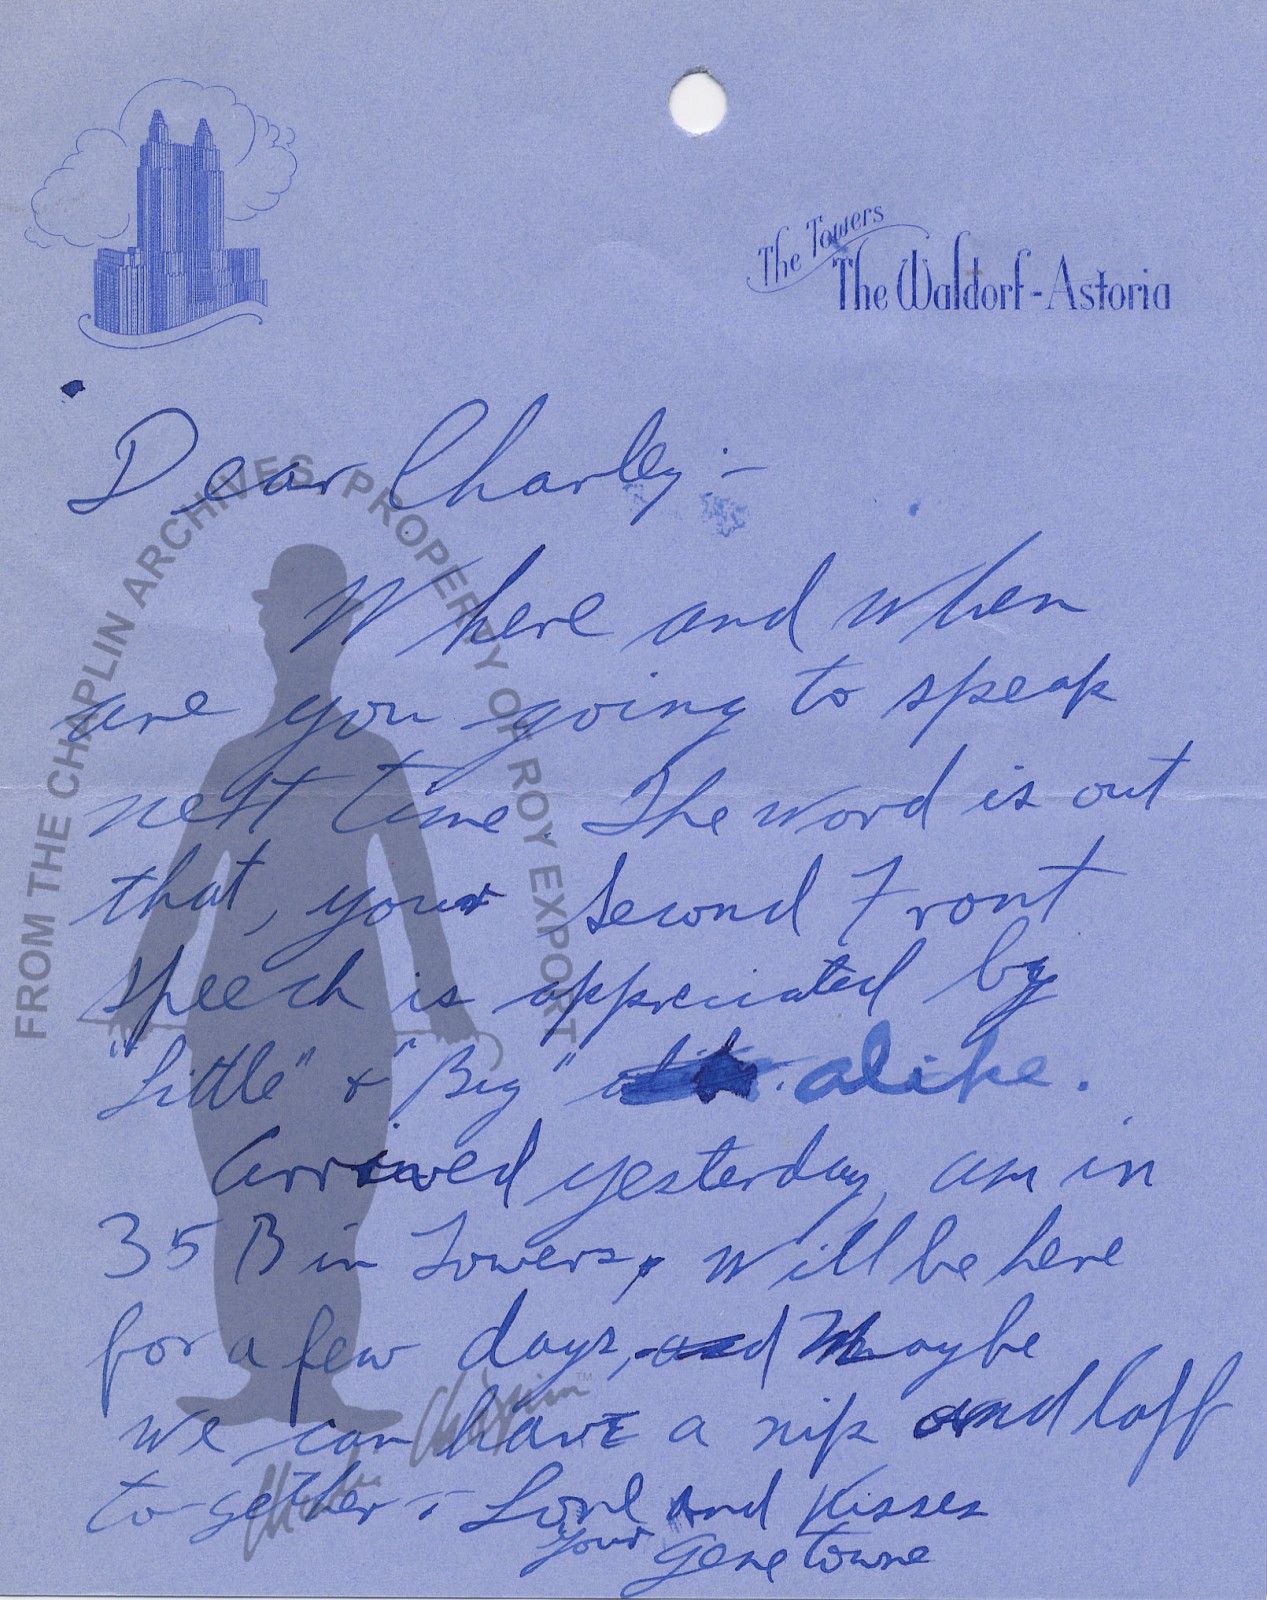 The Towers
The Waldorf-Astoria
Dear Charley:-
Where and when
are you going to speak
next time. The word is out
that, your Second Front
speech is appreciated by
"Little" & "Big" alike.
Arrived yesterday, am in
35 B in Towers, will be here
for a few days, and Maybe
we can have a nip and laff
together - Love and Kisses
your Gene Towne
FROM THE CHAPLIN ARCHIVES, PROPERTY OF ROY EXPORT
Charlie Chaplin™